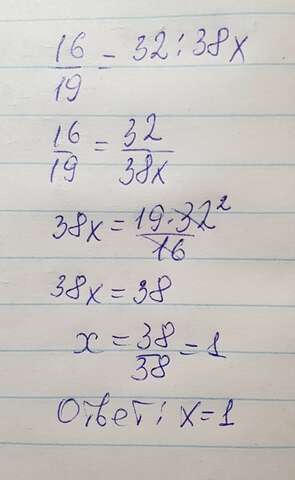 16/19 = 32 : 38x
16/19 = 32/38x
38x = 19·32²/16
38x = 38
x = 38/38 = 1
Ответ: x=1